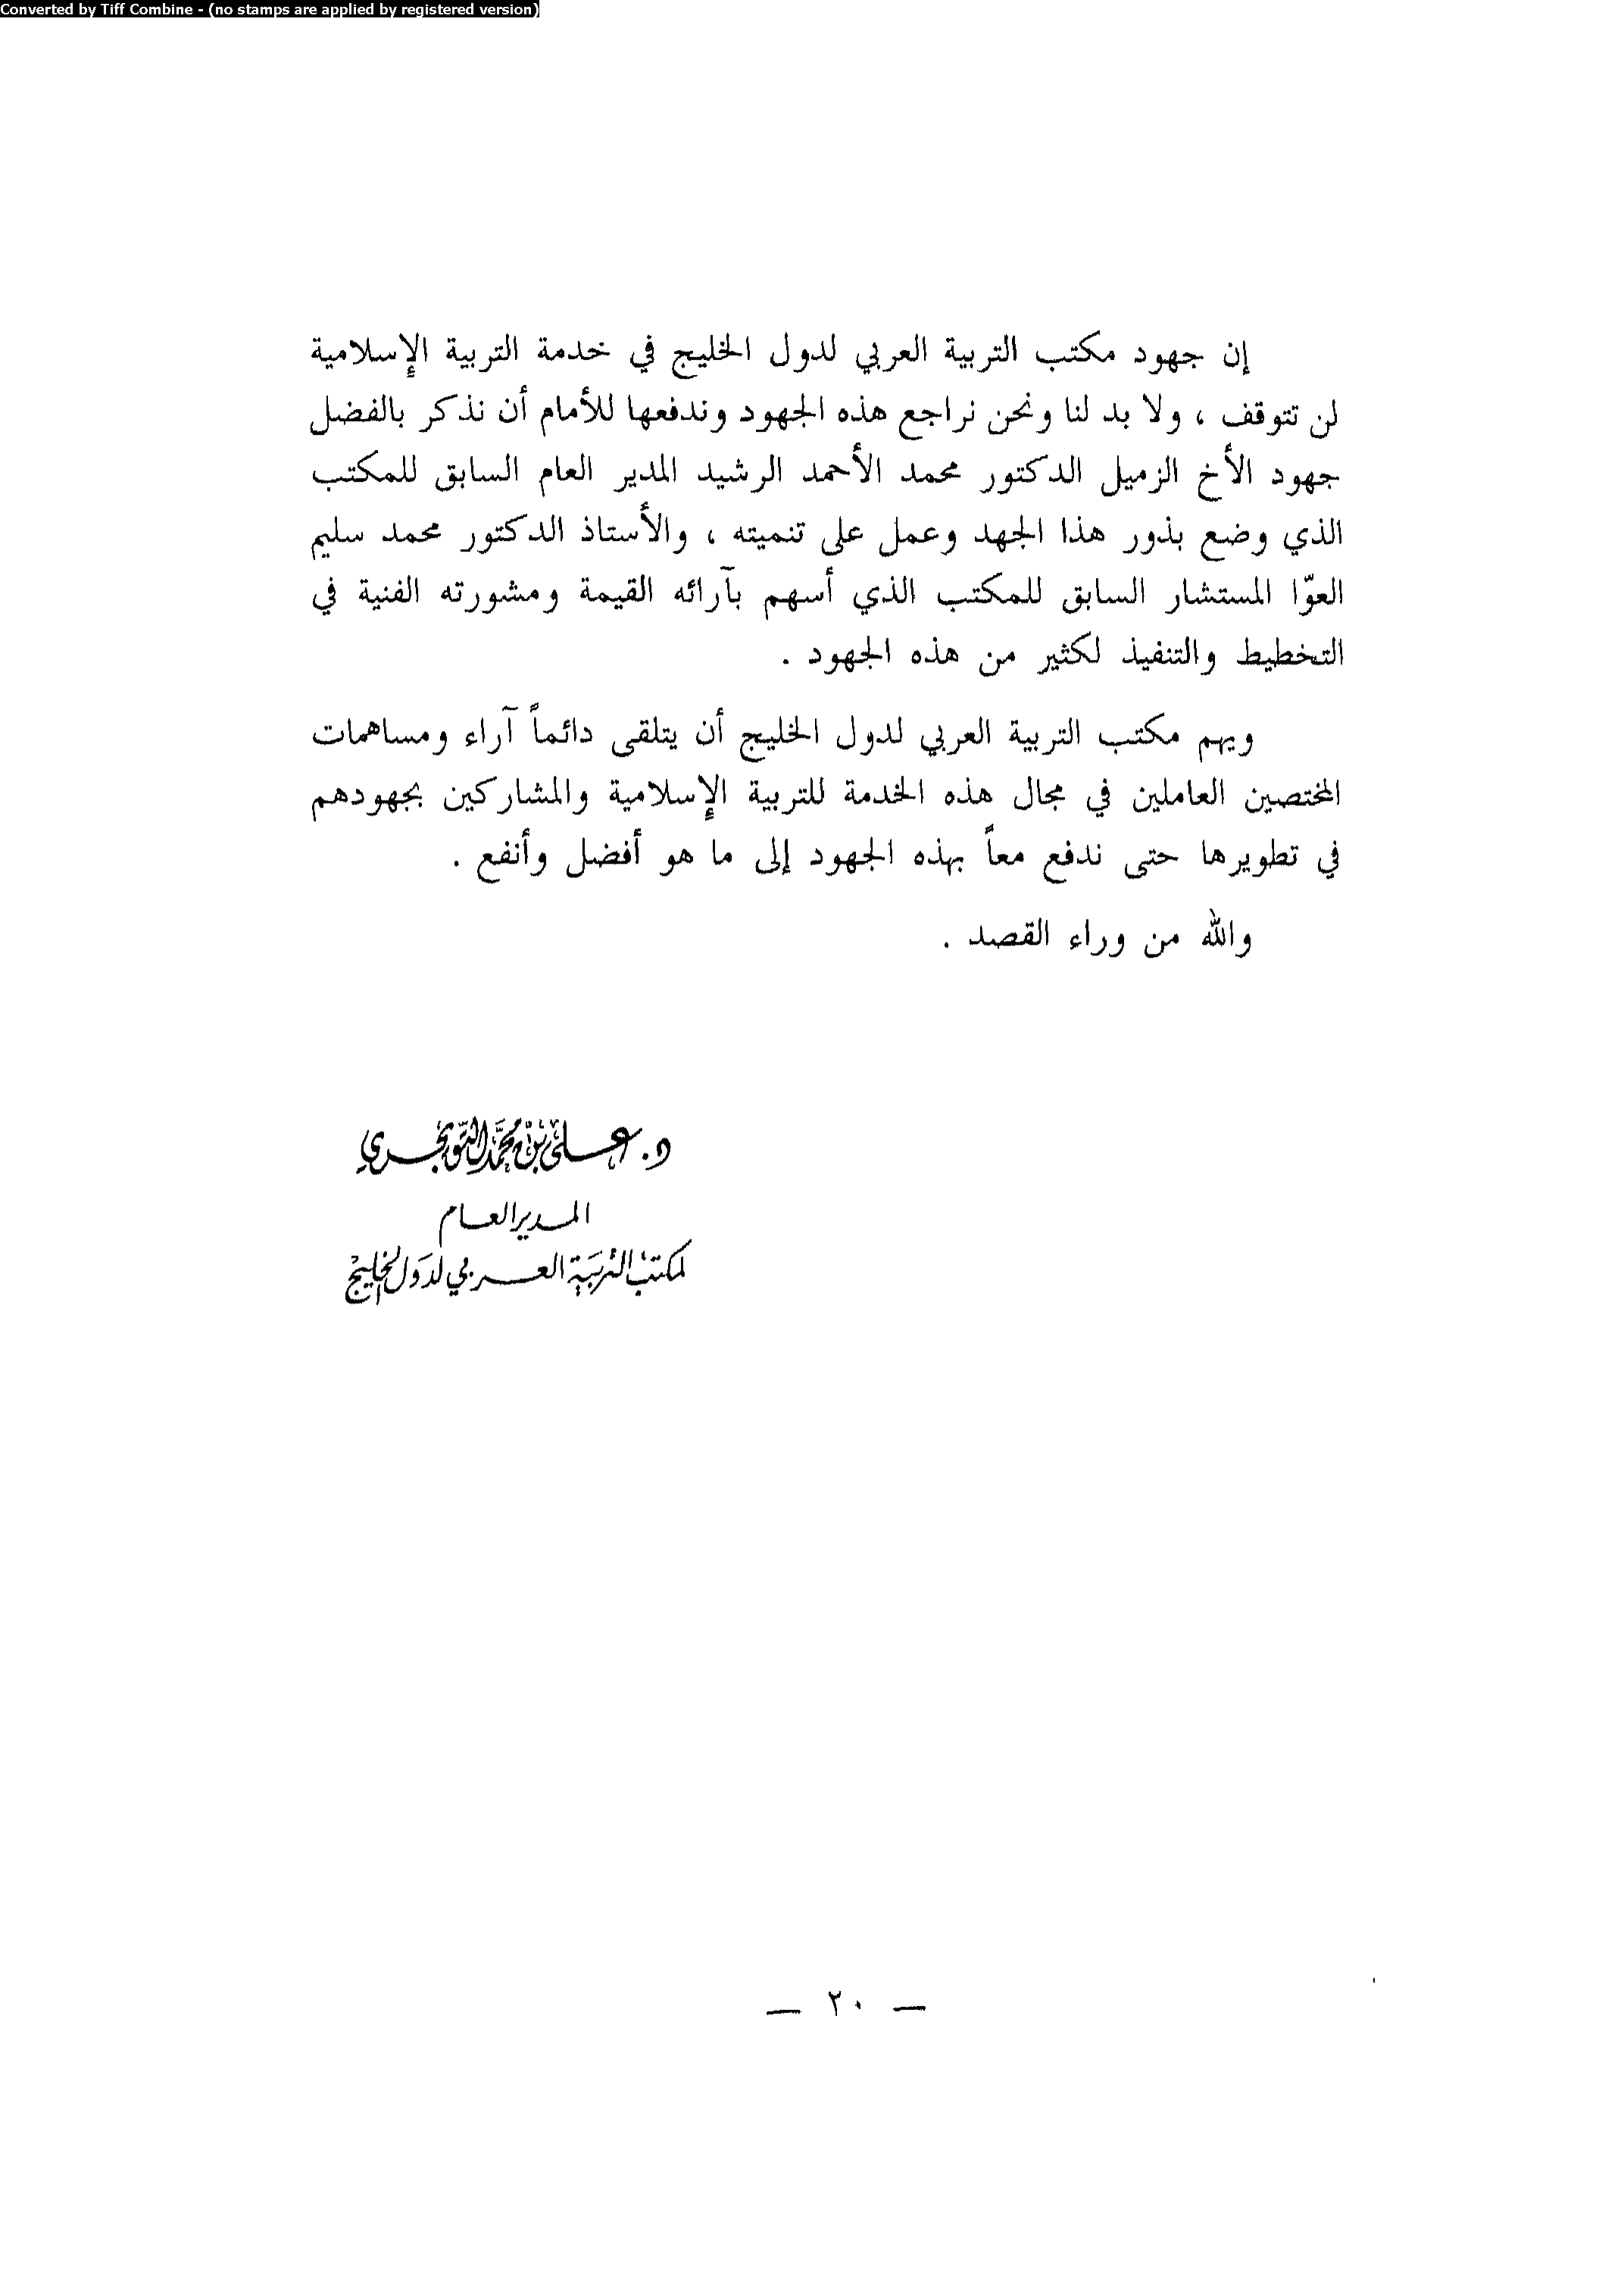 Converted by Tiff Combine - (no stamps are applied by registered version)
إن جهود مكتب التربية العربي لدول الخليج في خدمة التربية الإسلامية
لن تتوقف ، ولا بد لنا ونحن نراجع هذه الجهود وندفعها للأمام أن نذكر بالفضل
جهود الأخ الزميل الدكتور محمد الأحمد الرشيد المدير العام السابق للمكتب
الذي وضع بذور هذا الجهد وعمل على تنميته ، والأستاذ الدكتور محمد سليم
العوّا المستشار السابق للمكتب الذي أسهم بآرائه القيمة ومشورته الفنية في
التخطيط والتنفيذ لكثير من هذه الجهود .
ويهم مكتب التربية العربي لدول الخليج أن يتلقى دائماً آراء ومساهمات
المختصين العاملين في مجال هذه الخدمة للتربية الإسلامية والمشاركين بجهودهم
في تطويرها حتى ندفع معاً بهذه الجهود إلى ما هو أفضل وأنفع .
والله من وراء القصد .
د. علي بن محمد التويجري
المدير العام
لمكتب التربية العربي لدول الخليج
— ٢٠ —